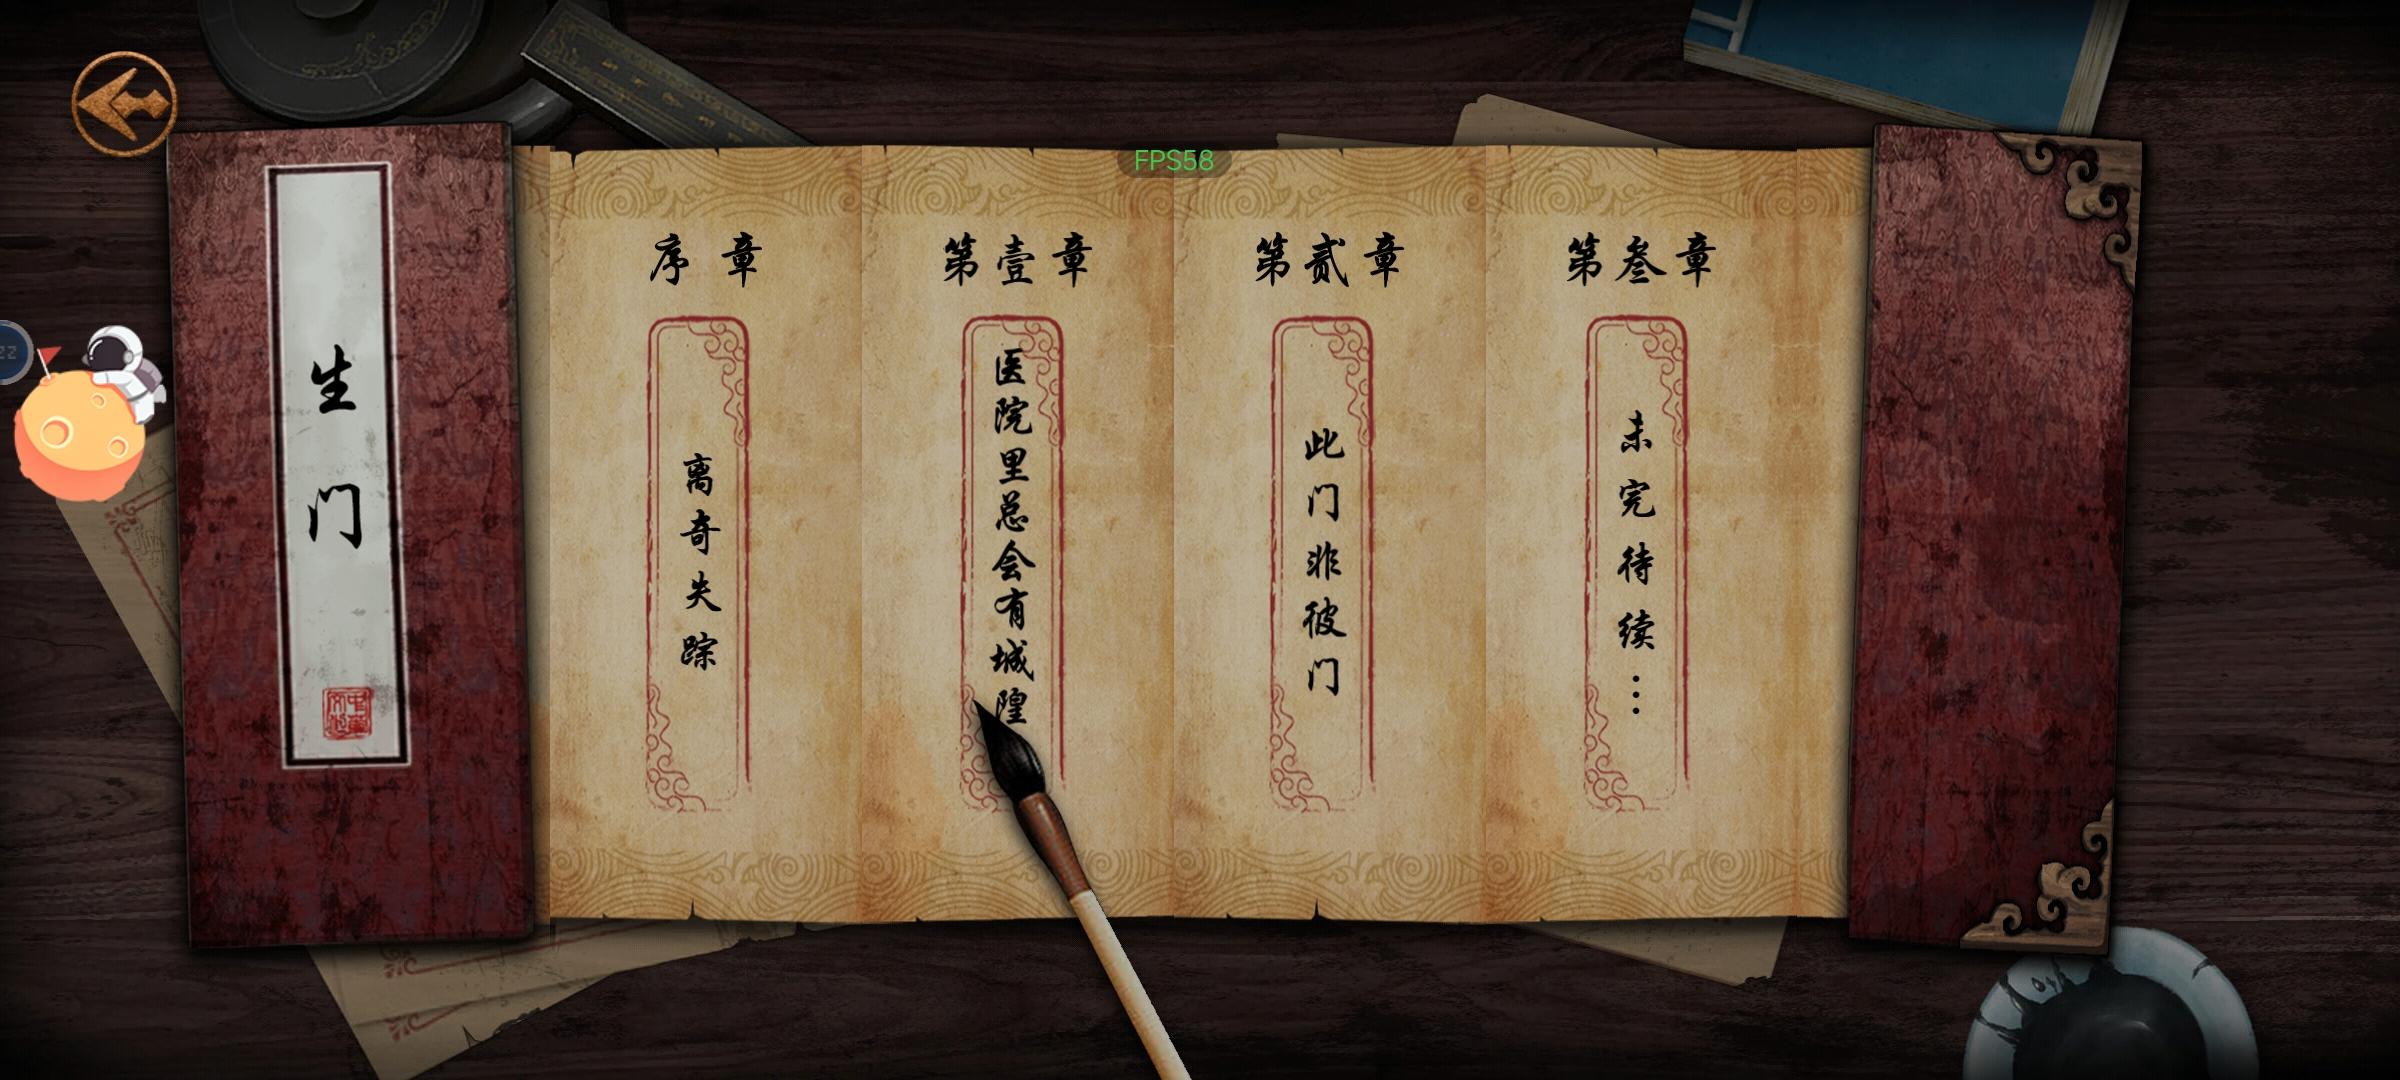 FPS58
生门
序章
离奇失踪
第壹章
医院里总会有城隍
第贰章
此门非彼门
第叁章
未完待续…